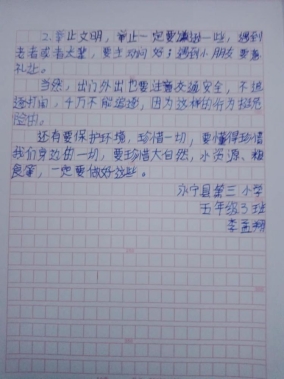 2.举止文明,举止一定要谦逊一些,遇到
老者或者夫辈,要主动问好;遇到小朋友要有
礼让。
当然,出门外出也要注意交通安全,不追
逐打闹,千万不能编造,因为这样的行为
还有要保护环境,珍惜一切,要懂得珍惜
我们身边的一切,要珍惜大自然,水资源、粮
食等,一定要做好这些。
永宁县第三小学
五年级3班
李